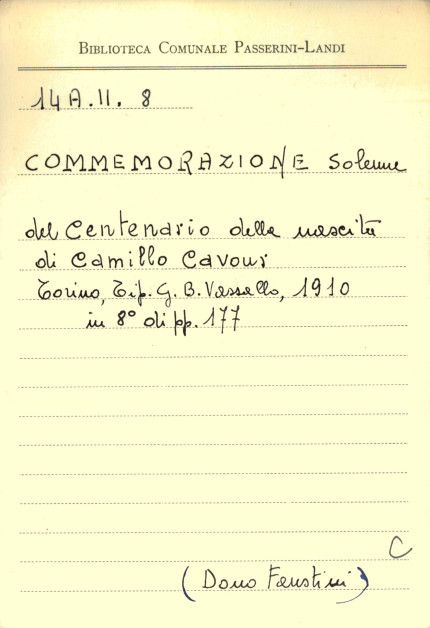 BIBLIOTECA COMUNALE PASSERINI-LANDI
14A.II. 8
COMMEMORAZIONE Solenne
del Centenario della nascita
di Camillo Cavour
Torino, Tip. G. B. Vassallo, 1910
in 8° di pp. 177
C
(Dono Faustini)